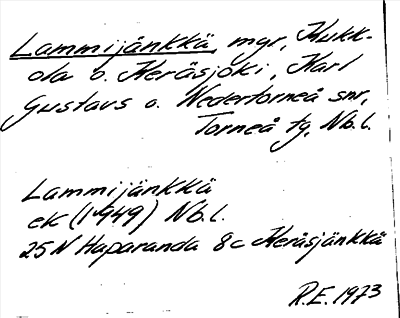 Lammijänkkä, myr, Kukk-
ola o. Keräsjoki, Karl
Gustavs o. Nedertorneå snr,
Torneå tg, Nb.l.
Lammijänkkä
ek (1949) Nb.l.
25N Haparanda 8c Keräsjänkkä
R.E. 1973